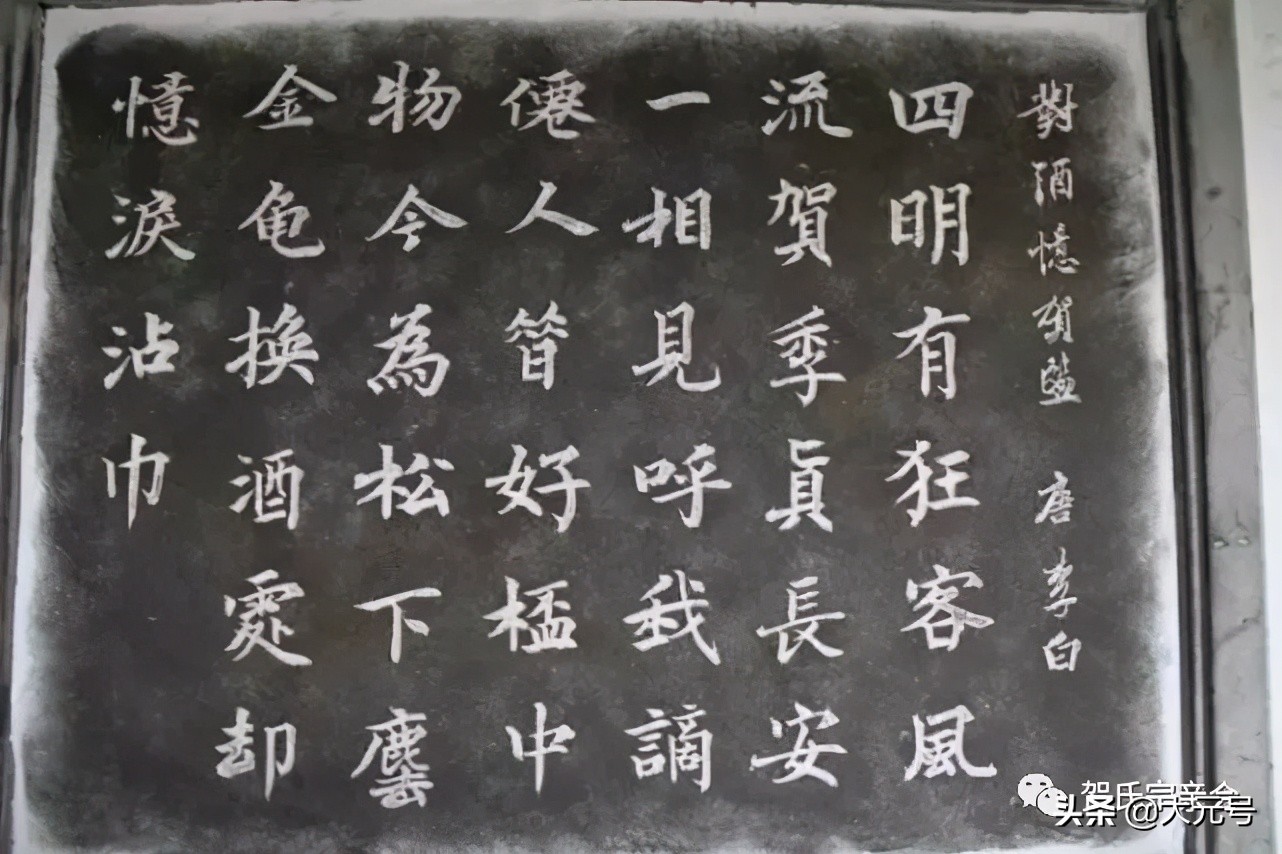 對酒憶賀監 唐李白
四明有狂客風
流賀季真長安
一相見呼我謫
僊人昔好杯中
物今為松下塵
金龟換酒處却
憶淚沾巾
贺氏宗亲会
头条 @大元号